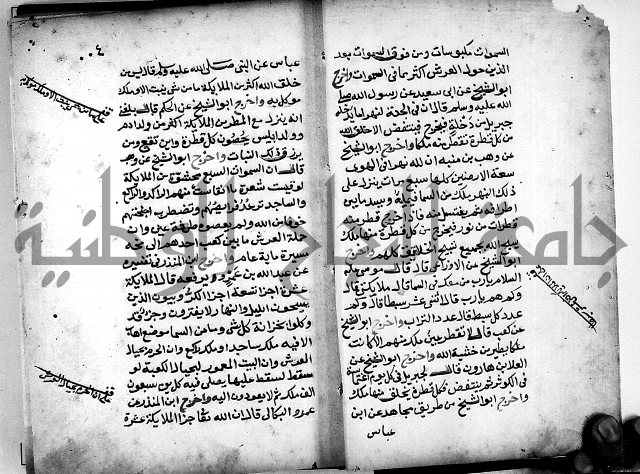 السموات مكبوسات ومن فوق السموات بعد
الذين حول العرش أكثر مما في السموات وأخرج
أبو الشيخ عن أبي سعيد عن رسول الله صلى
الله عليه وسلم قال إن في الجنة لنهرا ما يدخله
جبريل من دخلة فيخرج فينتفض الا خلق الله
من كل قطرة تقطر منه ملكا وأخرج أبو الشيخ
عن وهب بن منبه ان لله نهرا في الهوى
سعة الارضين كلها سبع مرات ينزل على
ذلك النهر ملك من السما فيملؤه ويسد ما بين
اطرافه ثم يغتسل منه فاذا خرج قطر منه
قطرات من نور فيخرج من كل قطرة منها ملك
يسبح الله بجميع تسبيح الخلائق كلهم وأخرج
أبو الشيخ عن الاوزاعي قال قال موسى عليه
السلام يارب من معك في السما قال ملايكتي قال
وكم هم يارب قال اثني عشر سبطا قال وكم
عدد كل سبط قال عدد التراب وأخرج أبو الشيخ
عن كعب قال لا تقطر عين ملك منهم الا كانت
ملكا يطير من خشية الله وأخرج أبو الشيخ عن
العلا بن هارون قال لجبريل في كل يوم اغتماسة
في الكوثر ثم ينتفض فكل قطرة يخلق منها ملك
وأخرج أبو الشيخ من طريق مجاهد عن ابن
عباس
٤
عباس عن النبي صلى الله عليه وسلم قال ليس من
خلق الله أكثر من الملايكة ما من شي ينبت الا وملك
موكل به وأخرج أبو الشيخ عن الحكم قال بلغني
انه ينزل مع المطر من الملايكة أكثر من ولد ادم
وولد ابليس يحصون كل قطرة واين تقع ومن
يرزق ذلك النبات وأخرج أبو الشيخ عن وهب
قال ان السموات السبع محشوة من الملايكة
لو قيست شعرة ما انقاست منهم الراكد والراكع
والساجد ترعد فرائصهم وتضطرب اجنحتهم
خوفا من الله ولم يعصوه طرفة عين وان
حملة العرش ما بين كعب احدهم الى مخه
مسيرة ماية عام وأخرج ابن المنذر
عن عبد الله بن عمرو ويرفعه قال الملايكة
عشرة اجزا تسعة اجزا الكروبيون الذين
يسبحون الليل والنهار لا يفترون وجزا قد
وكلوا بخزانة كل شي وما من السما موضع اهاب
الا فيه ملك ساجد او ملك راكع وان الحرم بحيال
العرش وان البيت المعمور لبحيال الكعبة لو
سقط لسقط عليها يصلي فيه كل يوم سبعون
الف ملك ثم لا يعودون اليه وأخرج ابن المنذر عن
عمرو البكالي قال ان الله تعالى جزا الملايكة عشرة
جامعة النجاح الوطنية